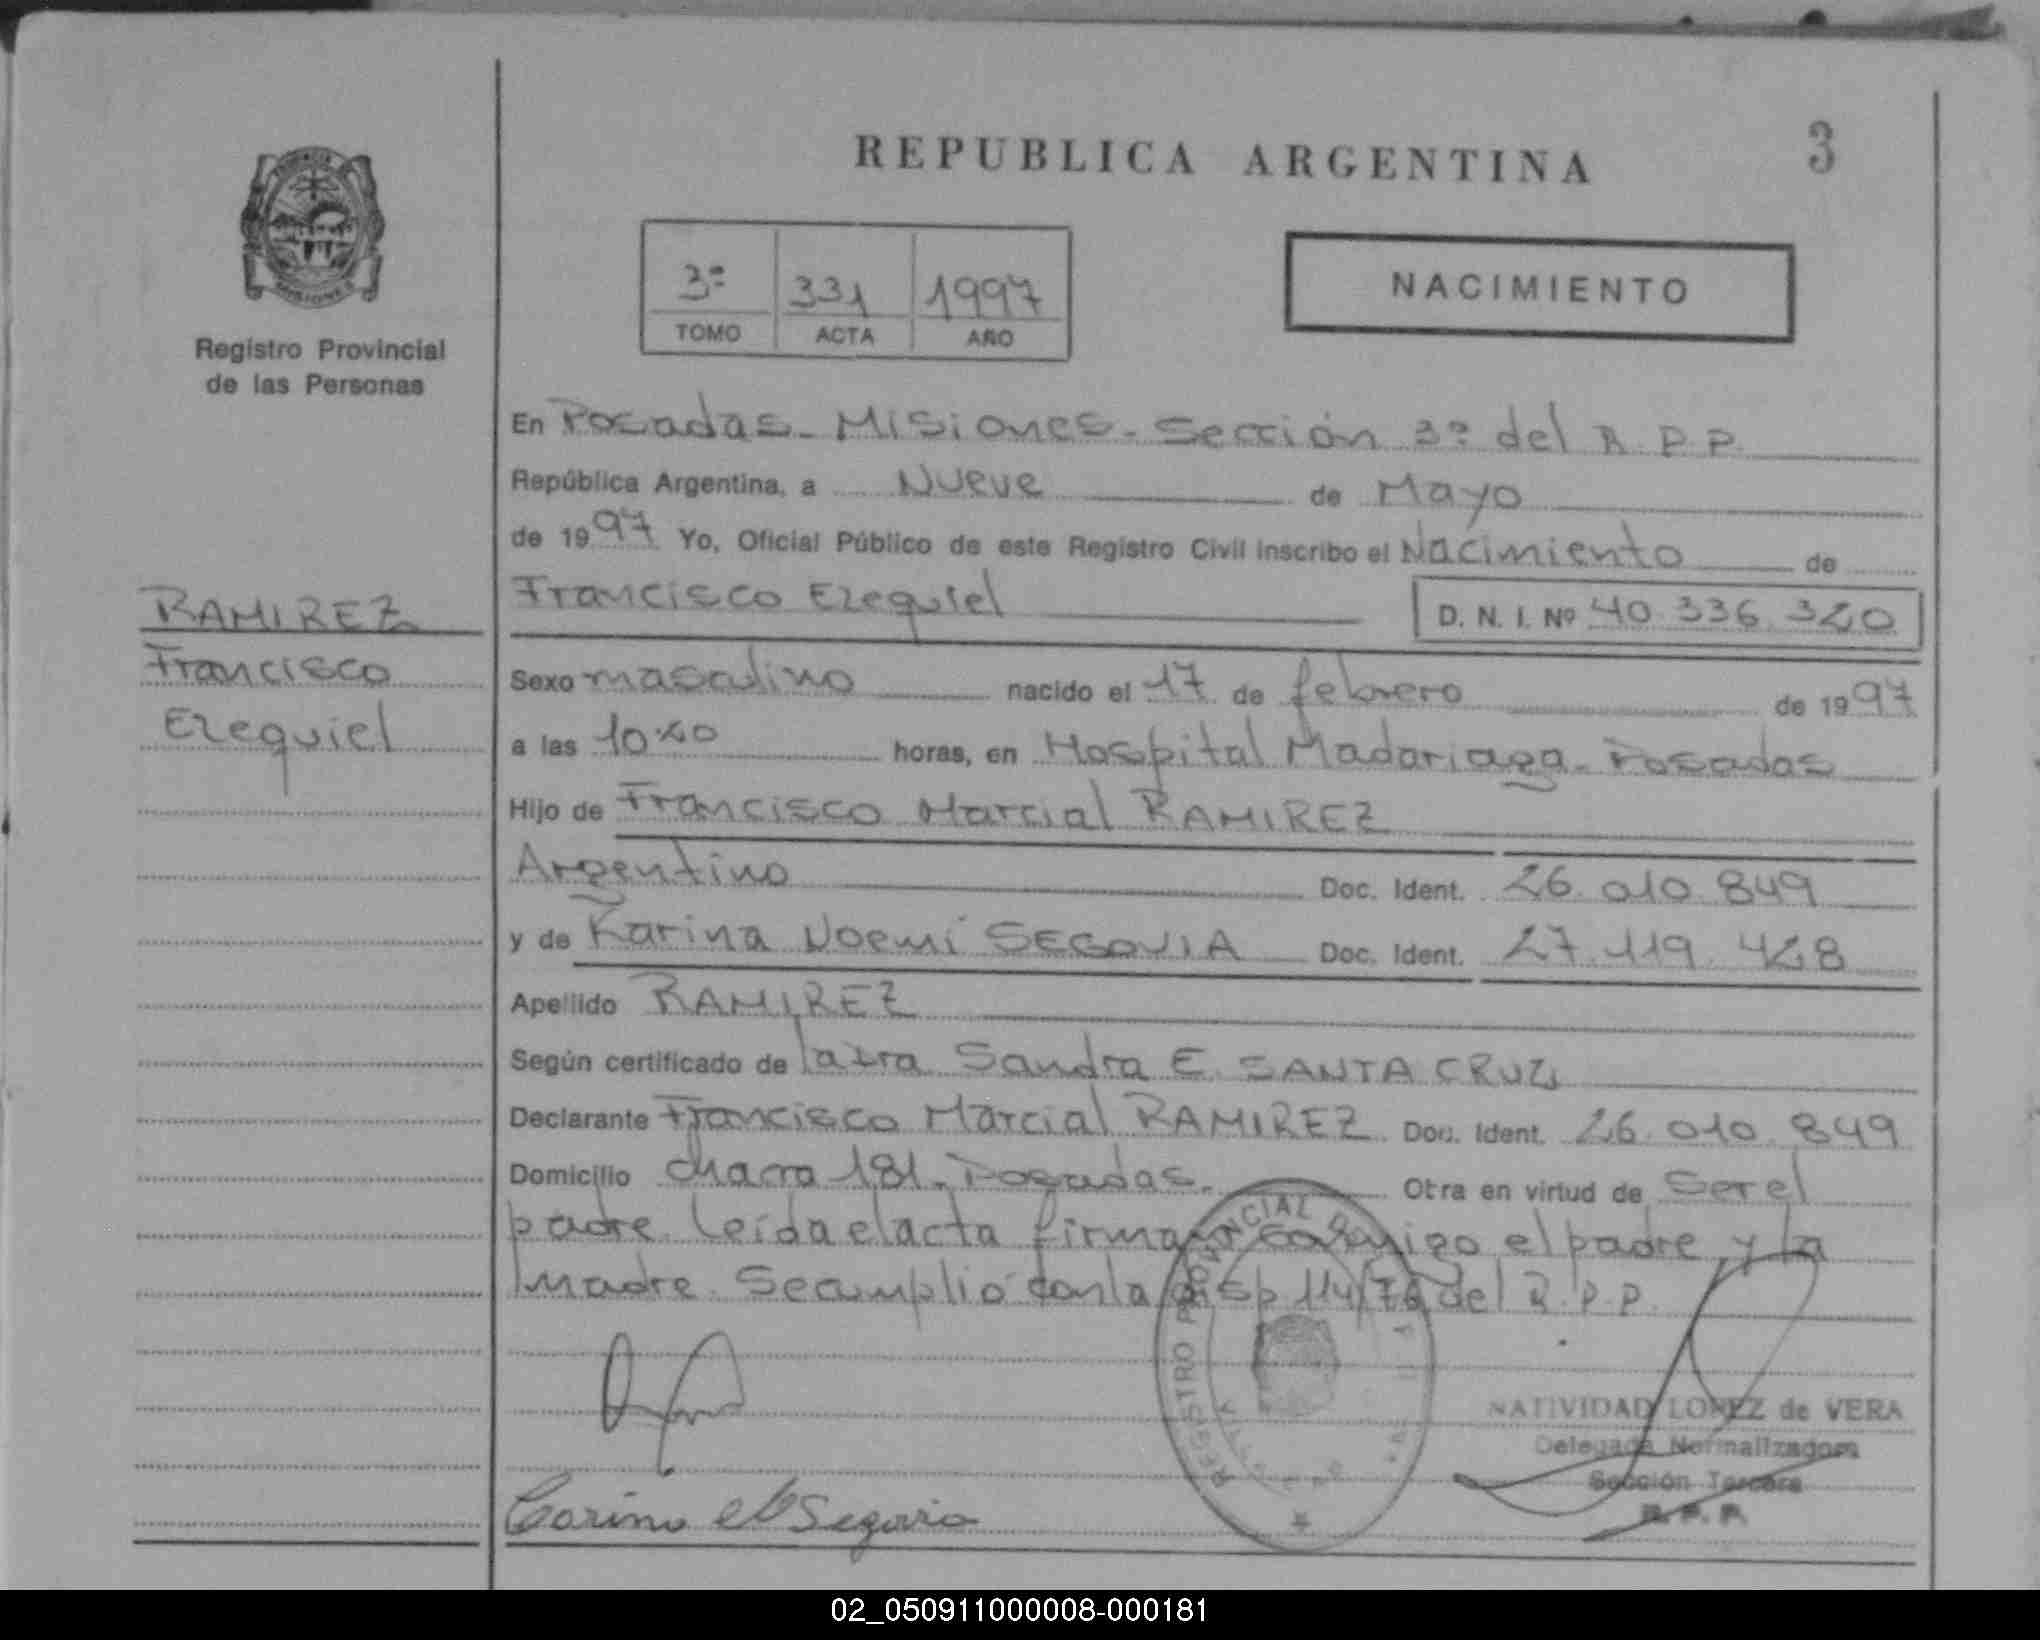 REPUBLICA ARGENTINA
3
MISIONES
Registro Provincial
de las Personas
3ª 331 1997
TOMO ACTA AÑO
NACIMIENTO
En Posadas - Misiones - Sección 3ª del R.P.P.
República Argentina, a Nueve de Mayo
de 1997 Yo, Oficial Público de este Registro Civil inscribo el Nacimiento de
Francisco Ezequiel D. N. I. Nº 40.336.320
RAMIREZ
Francisco
Ezequiel
Sexo masculino nacido el 17 de febrero de 1997
a las 10:40 horas, en Hospital Madariaga - Posadas
Hijo de Francisco Marcial RAMIREZ
Argentino Doc. Ident. 26.010.849
y de Karina Noemí SEGOVIA Doc. Ident. 27.119.428
Apellido RAMIREZ
Según certificado de la Dra Sandra E. SANTA CRUZ
Declarante Francisco Marcial RAMIREZ Doc. Ident. 26.010.849
Domicilio chacra 181 - Posadas. Otra en virtud de Ser el
padre. Leída el acta firman conmigo el padre y la
madre. Se cumplió con la Disp 114/76 del R.P.P.
REGISTRO PROVINCIAL
NATIVIDAD LOPEZ de VERA
Delegada Normalizadora
Sección Tercera
R. P. P.
Segovia
02_050911000008-000181